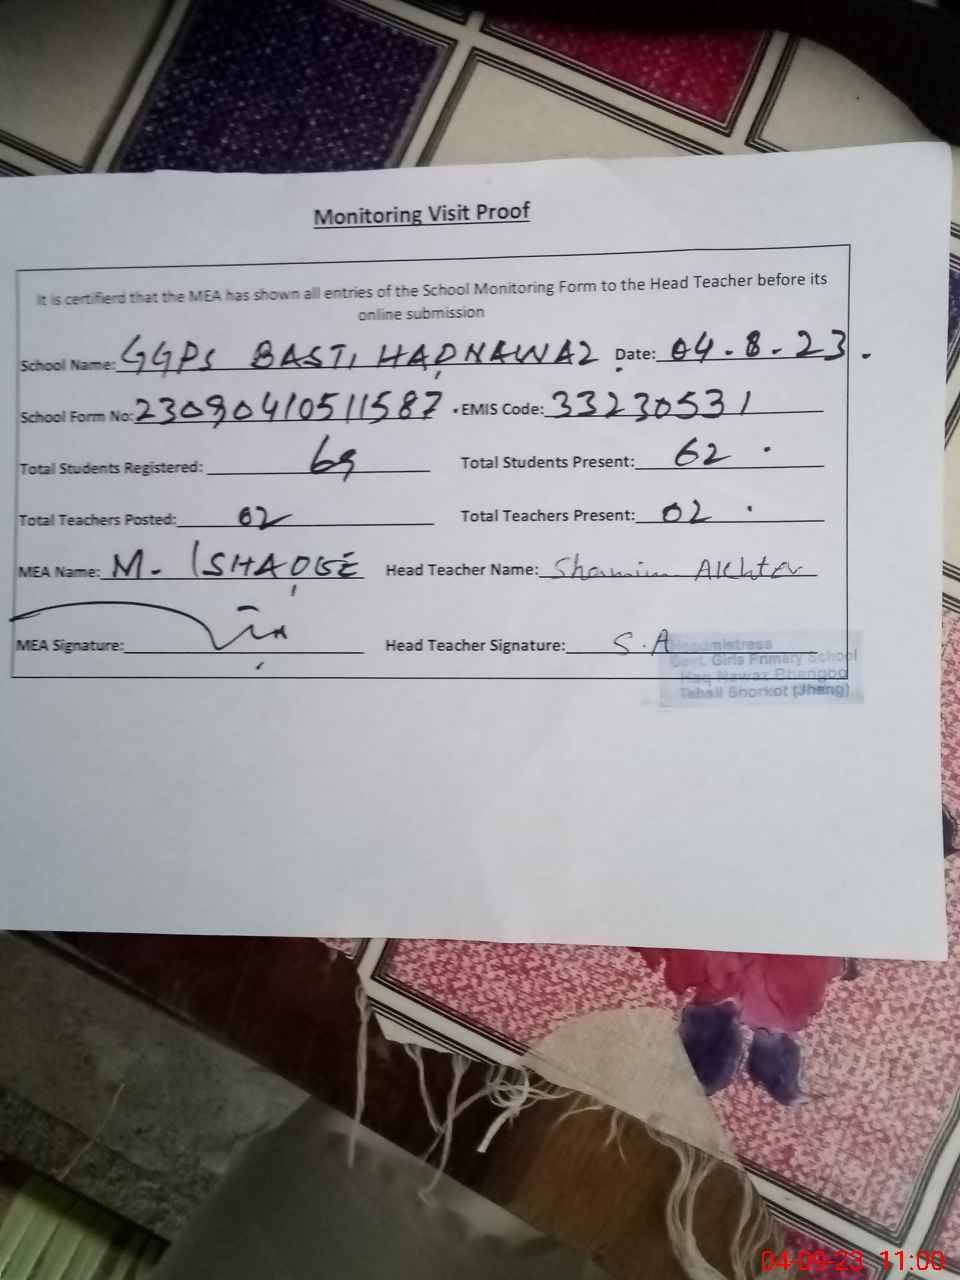 Monitoring Visit Proof
It is certifierd that the MEA has shown all entries of the School Monitoring Form to the Head Teacher before its
online submission
School Name: GGPS BASTI HAQNAWAZ Date: 04.8.23.
School Form No: 23090410511587 . EMIS Code: 33230531
Total Students Registered: 69 Total Students Present: 62
Total Teachers Posted: 02 Total Teachers Present: 02
MEA Name: M. ISHAQE Head Teacher Name: Shamim Akhter
MEA Signature: Head Teacher Signature: S.A
Headmistress
Govt. Girls Primary School
Haq Nawaz Bhangoo
Tehsil Shorkot (Jhang)
04-09-23 11:00